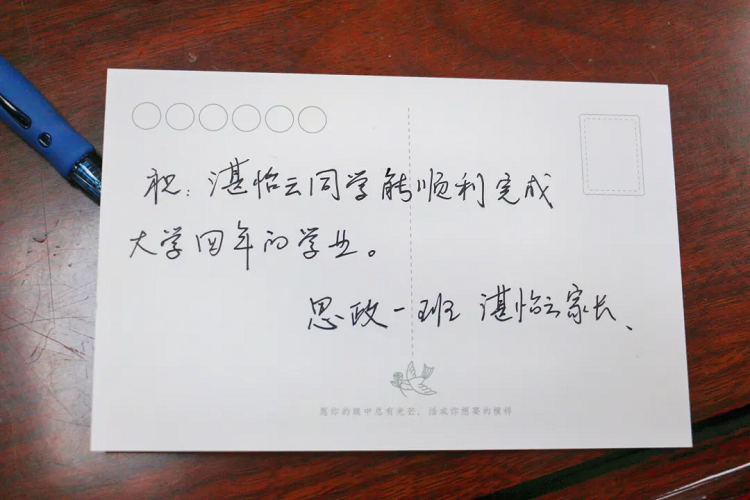 祝:湛怡云同学能顺利完成
大学四年的学业。
思政一班 湛怡云家长、
愿你的眼中总有光芒,活成你想要的模样